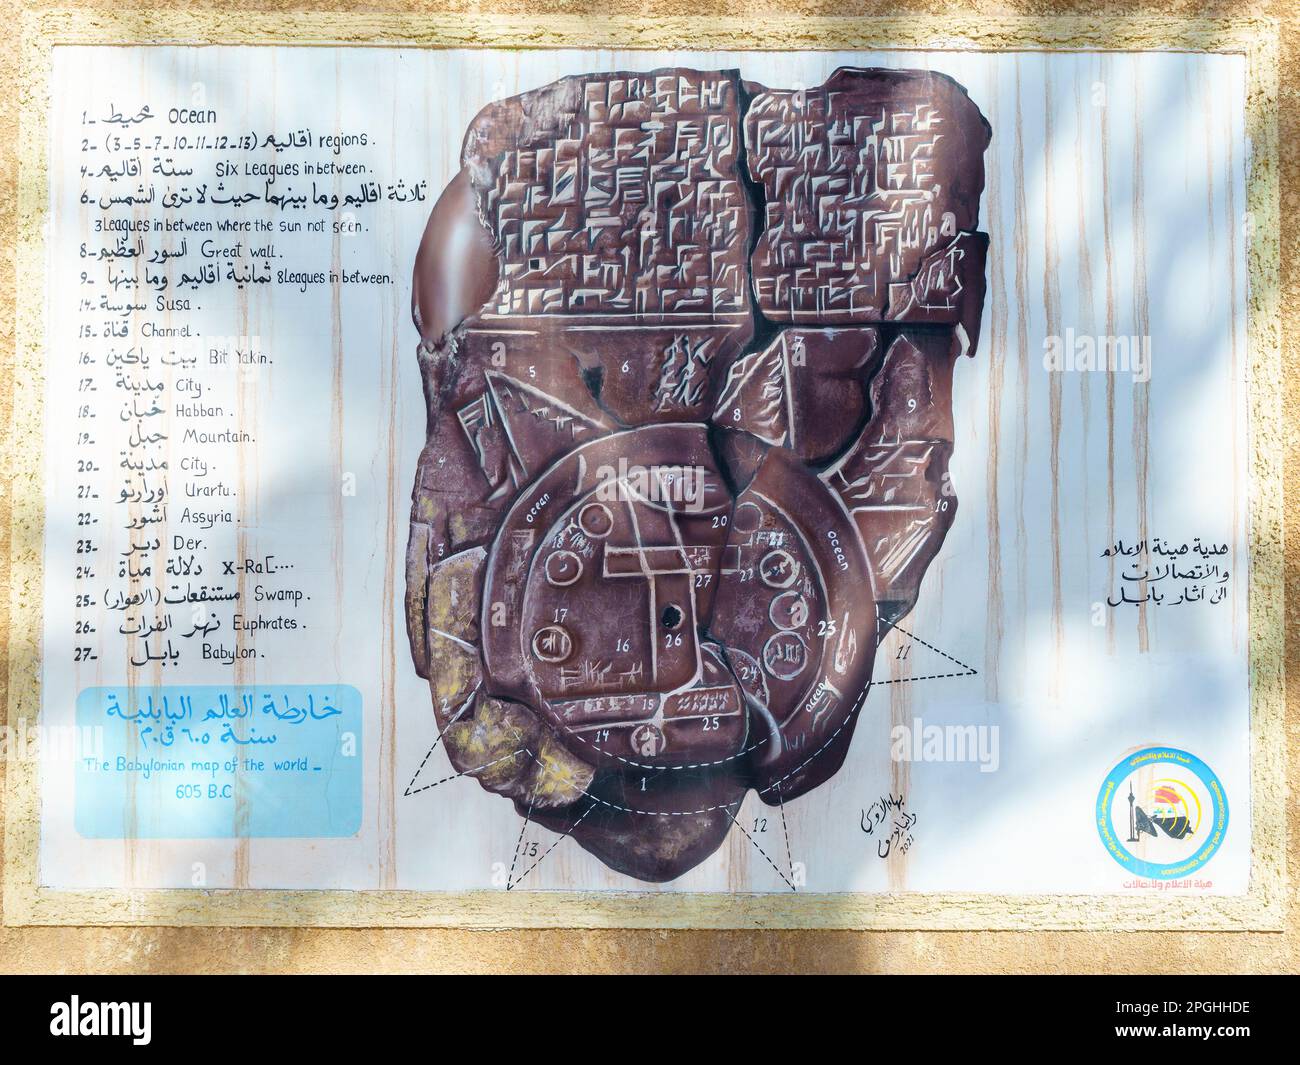 1_ محيط Ocean
2_ (3_5_7_10_11_12_13) أقاليم regions.
4_ ستة أقاليم Six Leagues in between.
6_ ثلاثة اقاليم وما بينهما حيث لا ترى الشمس
3 Leagues in between where the sun not seen.
8_ السور العظيم Great wall.
9_ ثمانية أقاليم وما بينها 8 Leagues in between.
14_ سوسة Susa.
15_ قناة Channel.
16_ بيت ياكين Bit Yakin.
17_ مدينة City.
18_ خبان Habban.
19_ جبل Mountain.
20_ مدينة City.
21_ أورارتو Urartu.
22_ آشور Assyria.
23_ دير Der.
24_ دلالة مياة X-Ra[....
25_ مستنقعات (الاهوار) Swamp.
26_ نهر الفرات Euphrates.
27_ بابل Babylon.
خارطة العالم البابلية
سنة ٦٠٥ ق.م
The Babylonian map of the world _
605 B.C
5
6
7
8
9
4
10
3
ocean
ocean
19
20
21
18
22
27
17
16
26
23
24
11
2
15
25
14
ocean
1
12
13
هدية هيئة الاعلام
والأتصالات
الى آثار بابل
2021
هيئة الاعلام والاتصالات
communication and media commission
هيئة الاعلام ولاتصالات
alamy
Image ID: 2PGHHDE
www.alamy.com